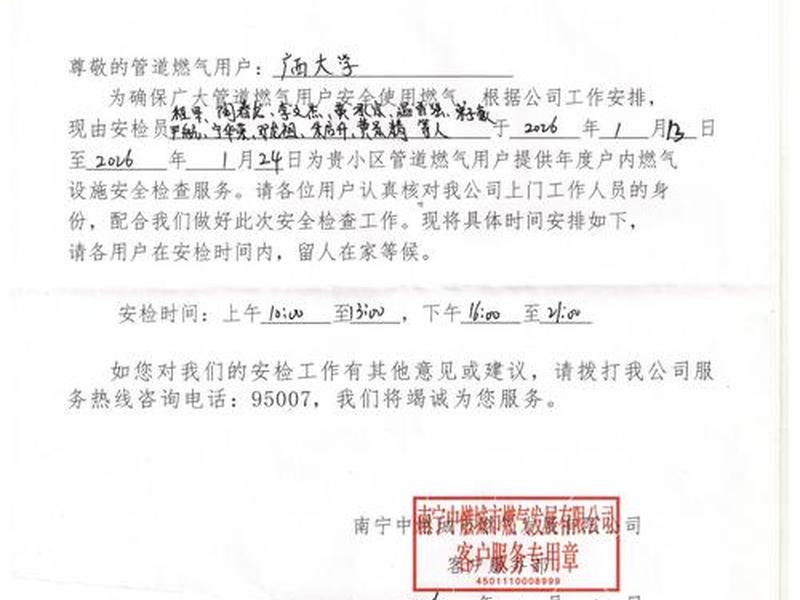 尊敬的管道燃气用户：广西大学
为确保广大管道燃气用户安全使用燃气，根据公司工作安排，
现由安检员 李文杰、等人 于 2026 年 1 月 13 日
至 2026 年 1 月 24 日为贵小区管道燃气用户提供年度户内燃气
设施安全检查服务。请各位用户认真核对我公司上门工作人员的身
份，配合我们做好此次安全检查工作。现将具体时间安排如下，
请各用户在安检时间内，留人在家等候。
安检时间：上午 10:00 至 13:00，下午 16:00 至 21:00
如您对我们的安检工作有其他意见或建议，请拨打我公司服
务热线咨询电话：95007，我们将竭诚为您服务。
南宁中燃城市燃气发展有限公司
南宁中燃城市燃气发展有限公司
客户服务部
客户服务专用章
4501110008999